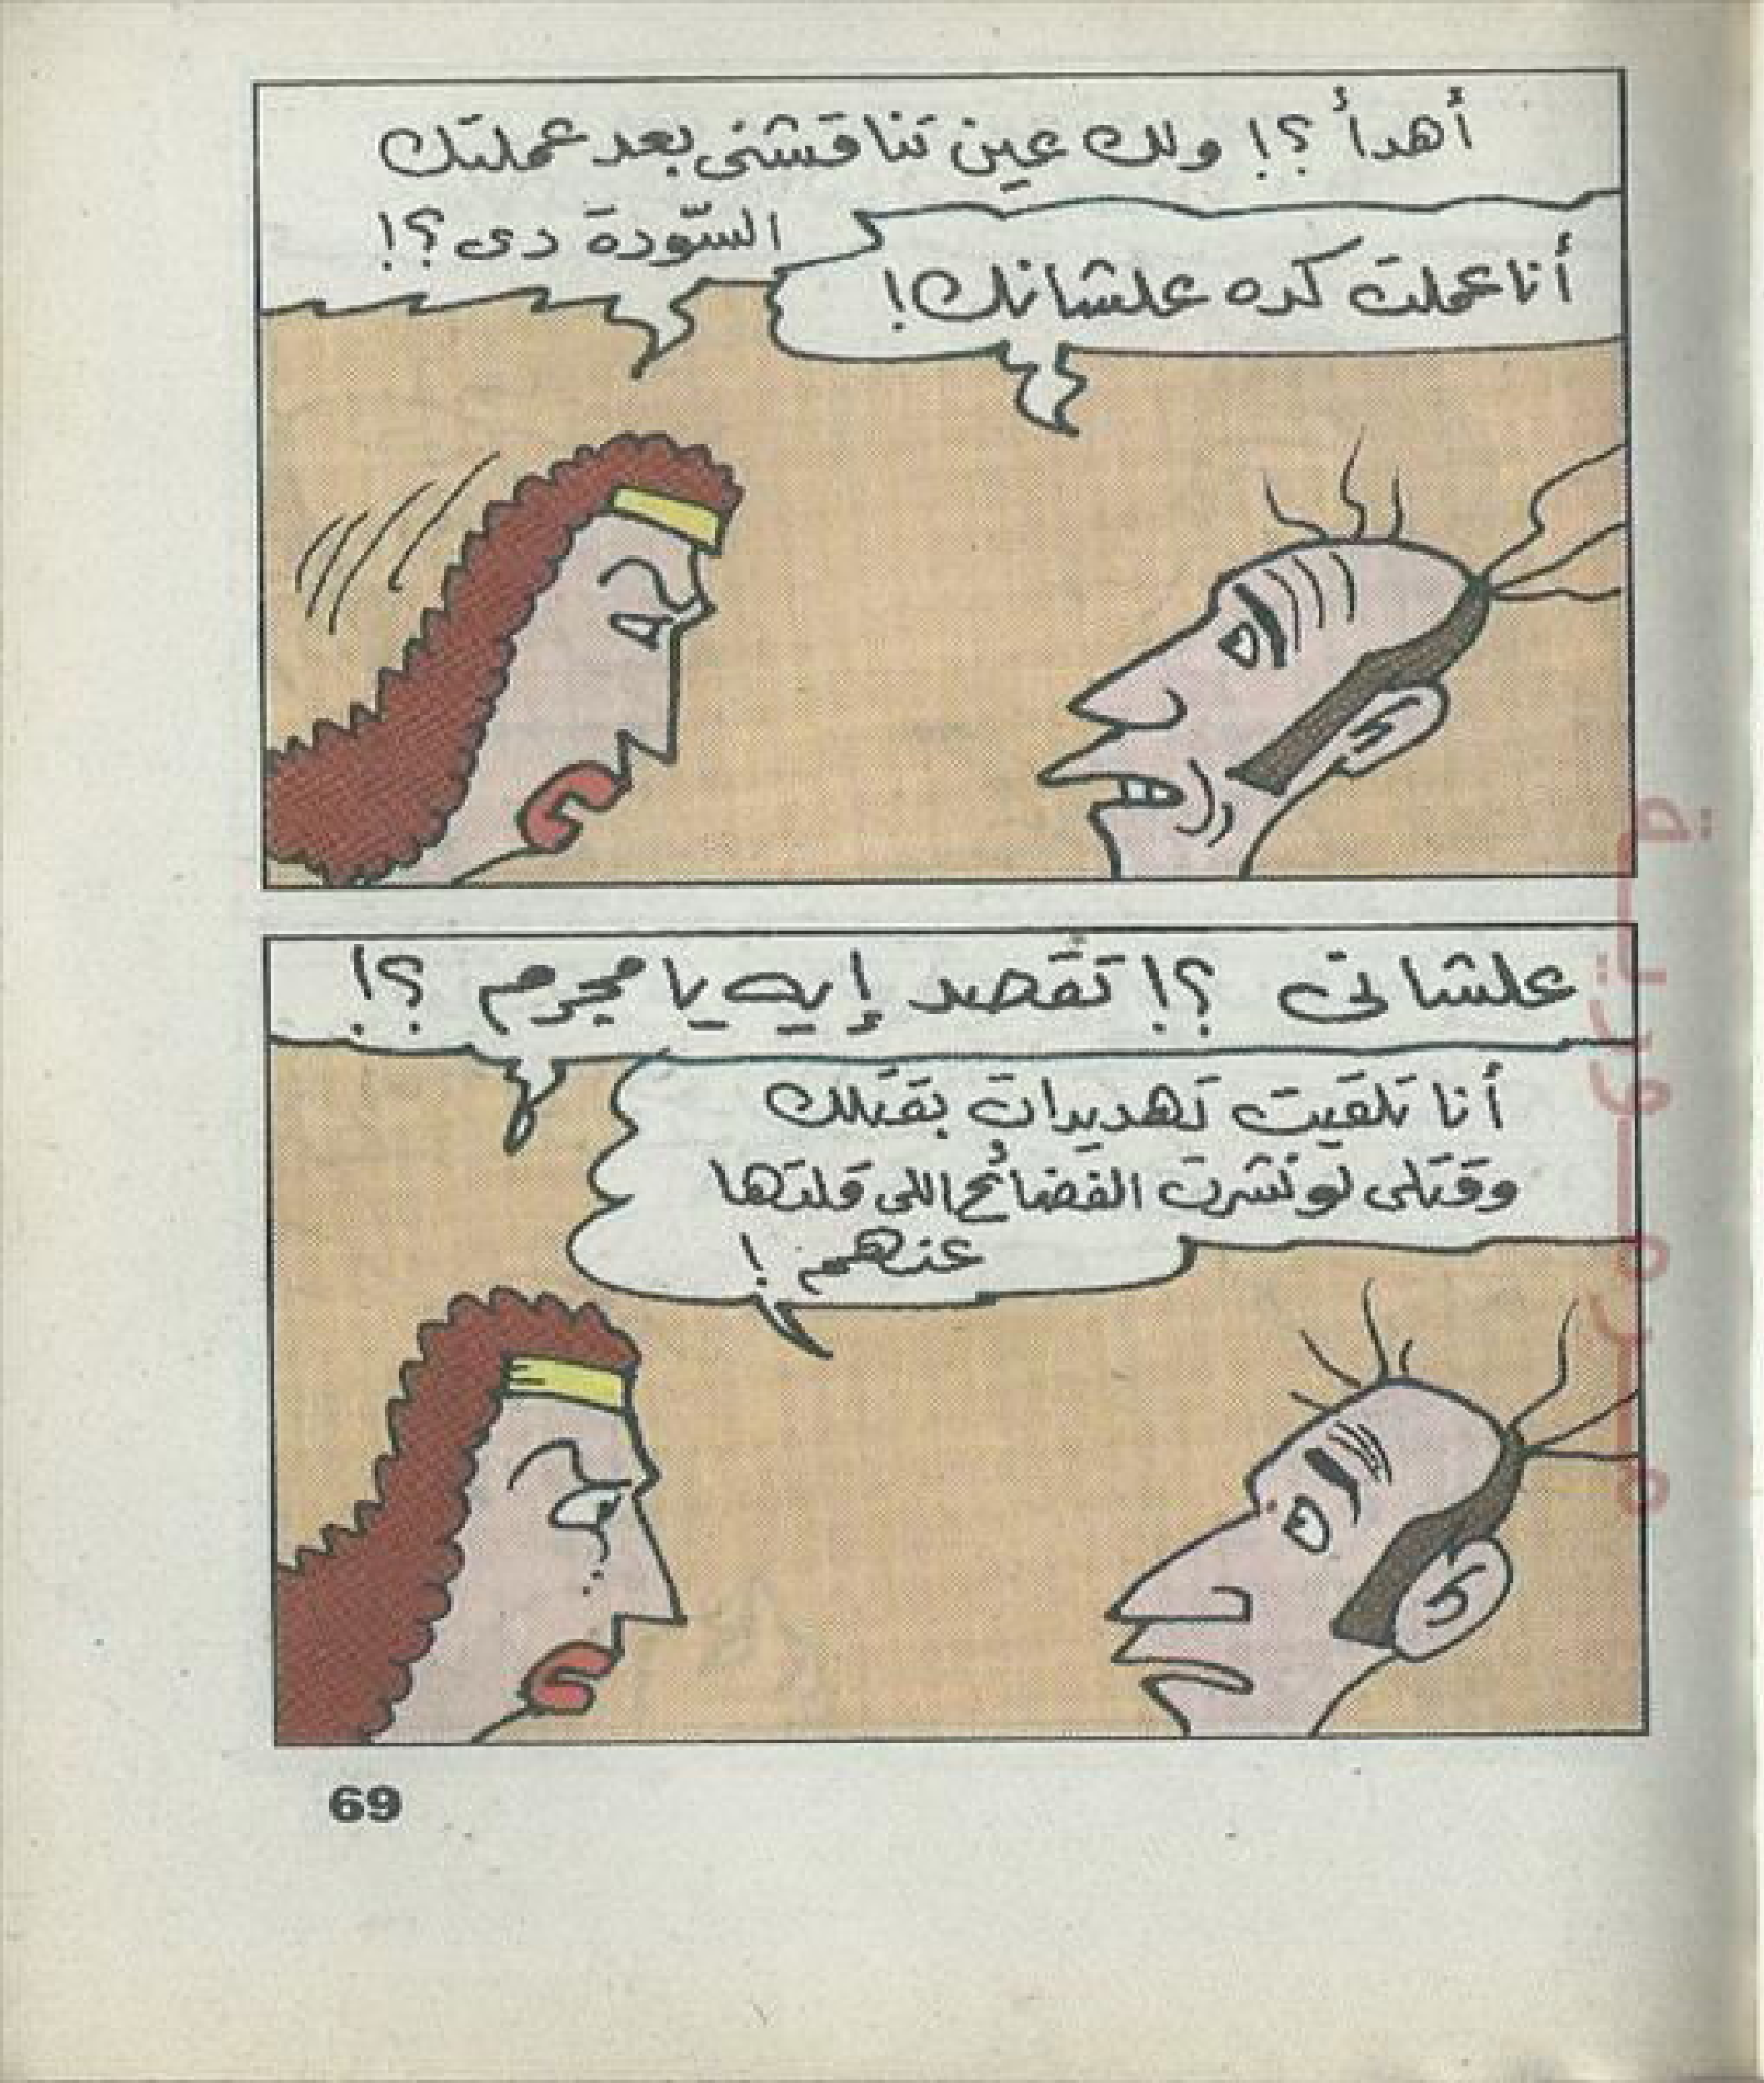 أهدأ ؟! ولك عين تناقشنى بعد عملتك
السّودة دى ؟!
أنا عملت كده علشانك !
علشانى ؟! تقصد إيه يا مجرم ؟!
أنا تلقيت تهديدات بقتلك
وقتلى لو نشرت الفضائح اللى قلتها
عنهم !
69